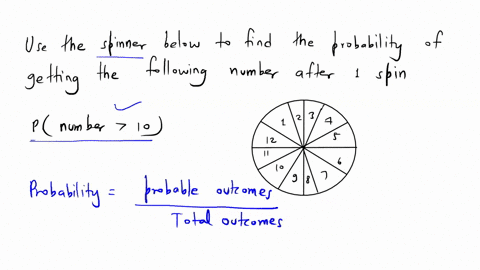 Use the spinner below to find the probability of
getting the following number after 1 spin
P( number > 10 )
1 2 3 4
12 5
11 6
10 9 8 7
Probability = probable outcomes
Total outcomes